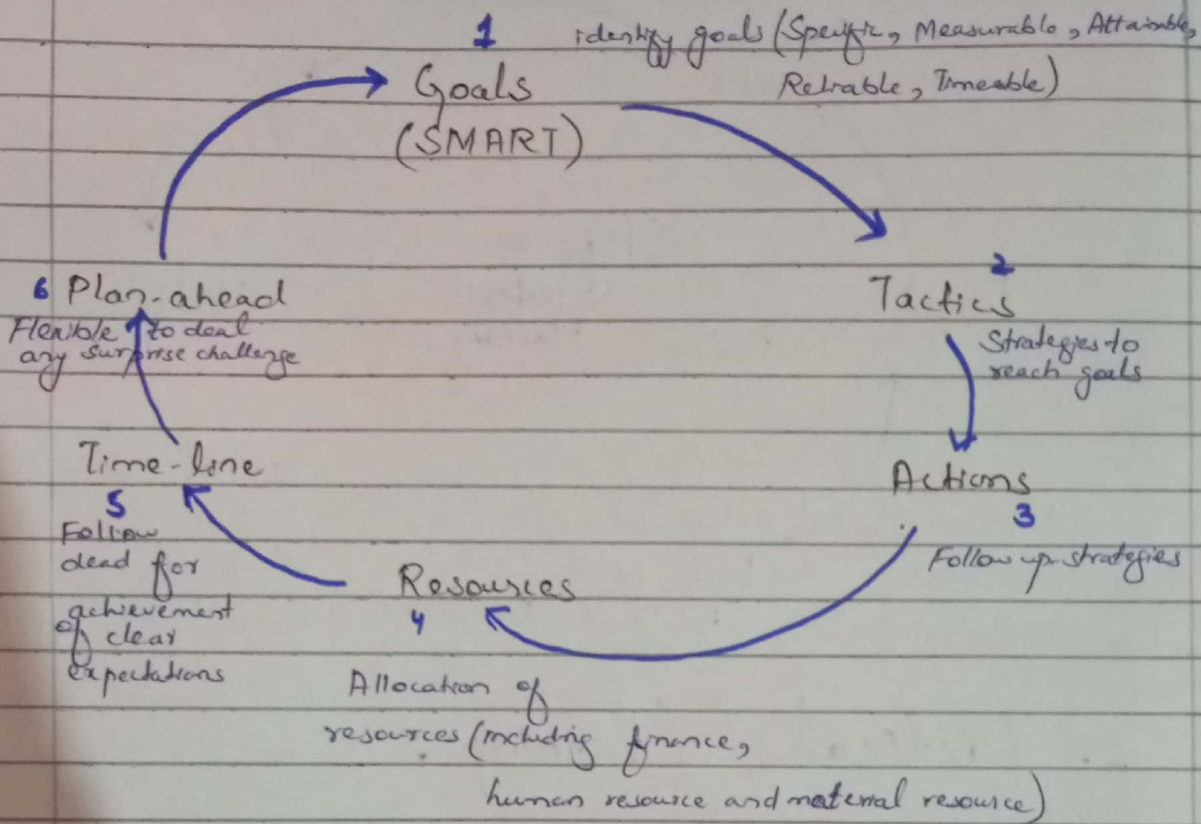 1
identify goals (Specific, Measurable, Attainable,
Reliable, Timeable)
Goals
(SMART)
2
Tactics
Strategies to
reach goals
Actions
3
Follow up strategies
Resources
4
Allocation of
resources (including finance,
human resource and material resource)
Time-line
5
Follow
dead for
achievement
of clear
expectations
6 Plan-ahead
Flexible to deal
any surprise challenge